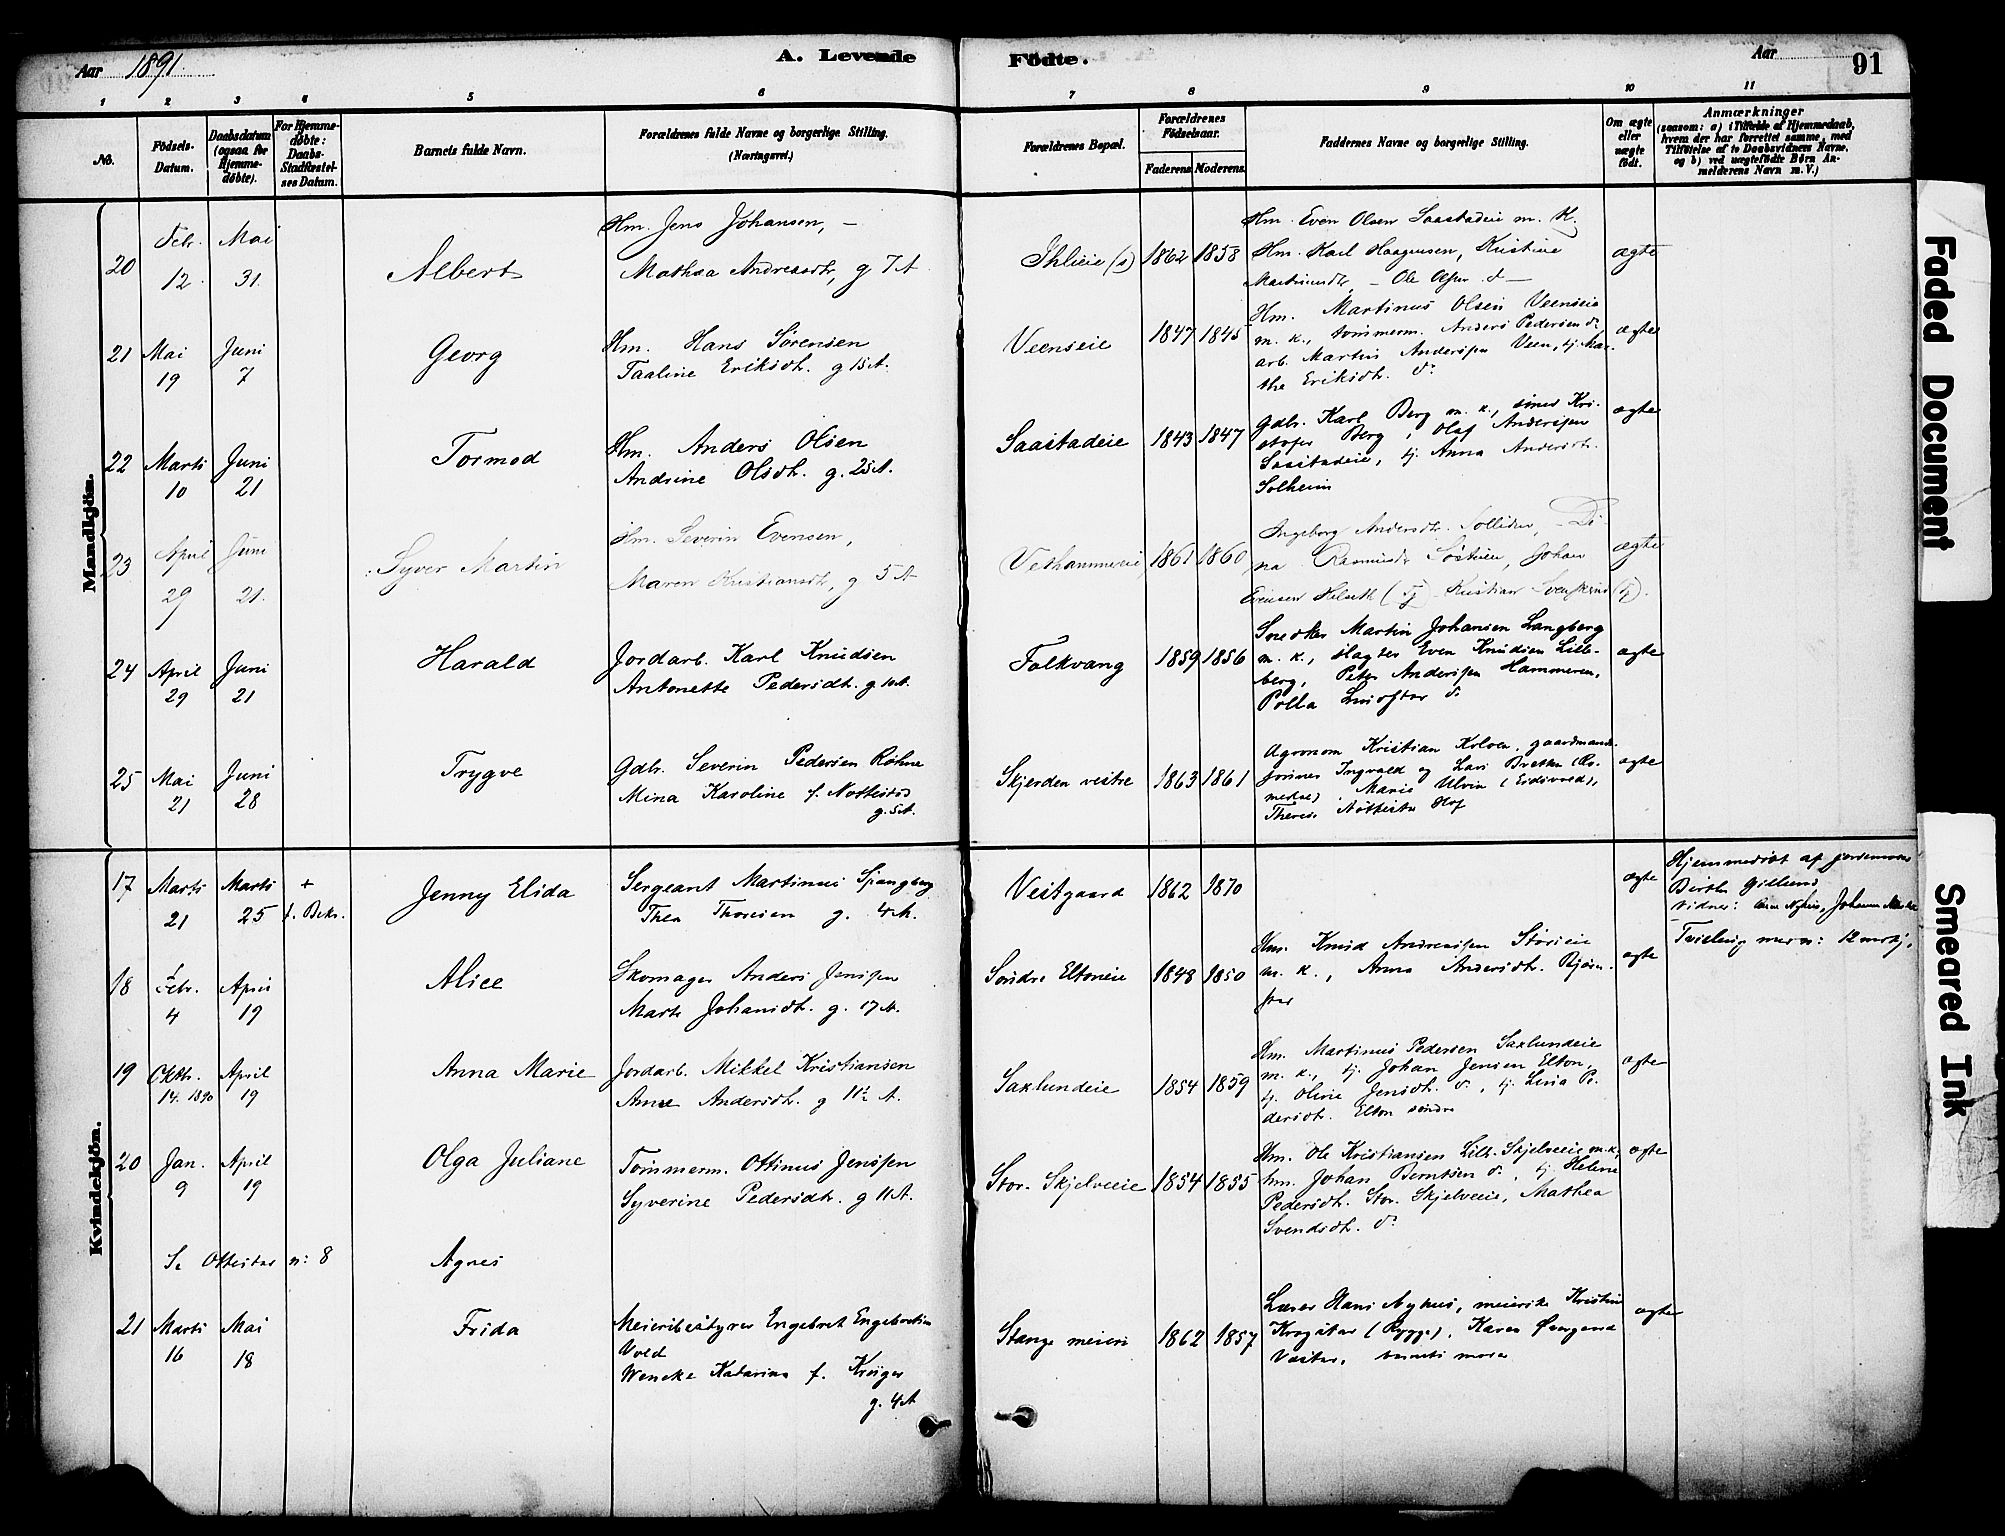 Aar 1891.
A. Levende Fødte.
Aar
91
1 2 3 4 5 6 7 8 9 10 11
No.
Fødsels-Datum.
Daabsdatum (ogsaa for Hjemme-døbte).
For Hjemme-døbte: Daabs-Stadfæstel-ses Datum.
Barnets fulde Navn.
Forældrenes fulde Navne og borgerlige Stilling. (Næringsvei.)
Forældrenes Bopæl.
Forældrenes Fødselsaar.
Faderens Moderens
Faddernes Navne og borgerlige Stilling.
Om ægte eller uægte født.
Anmærkninger
(saasom: a) i Tilfælde af Hjemmedaab,
hvem der har forrettet samme, med
Tilføielse af to Daabsvidners Navne,
og b) ved uægtefødte Børn An-
melderens Navn m. V.)
Mandkjøn.
20 Febr. 12. Mai 31. Albert
Hm. Jens Johansen, –
Mathea Andreasdtr, g 7 A
Ihleie (s) 1862 1858
Hm. Even Olsen Saastadeie m. K.
Hm. Karl Haagensen, Kristine
ægte
21 Mai 19 Juni 7 Georg
Hm. Hans Sørensen
Taaline Eriksdt. g 15 A.
Veenseie 1847 1845
Hm. Martinus Olsen Veenseie
m. k., tømmerm. Anders Pedersen do
arb. Martin Anderssen Veen, tj. Mar-
the Eriksdt. do
ægte
22 Marts 10 Juni 21 Tormod
Hm. Anders Olsen
Andrine Olsdt. g. 25 A.
Saastadeie 1843 1847
Gdbr. Karl Berg m. k., Kri-
stofer Berg, Olaf Anderssen
Saastadeie, tj. Anna Andersdt.
Solheim
ægte
23 April 29 Juni 21. Syver Martin
Hm. Severin Evensen,
Maren Kristiansdtr, g 5 A
Vethammereie 1861 1860
Ingeborg Andersdtr. – Di-
na Rasmusdtr Johan
Evensen Helseth (Tj) Kristian (Tj).
ægte
24 April 29 Juni 21 Harald
Jordarb. Karl Knudsen
Antonette Pedersdt. g. 10 A.
Folkvang 1859 1856
Snedker Martin Johansen Langberg
m. k., slagter Even Knudsen Lille-
berg, Peter Anderssen Hammeren,
do
ægte
25 Mai 21 Juni 28 Trygve
Gdbr. Severin Pedersen Røhne
Mina Karoline f. Nøttestad
g. 5 A.
Skjerden vestre 1863 1861
Agronom Kristian Kolven, gaardmands-
Ingvald og Lars (Ro-
medal) Marie Ulvin (Eidsvold),
Hof
ægte
Kvindekjøn.
17 Marts 21 Marts 25 + f. Bekr. Jenny Elida
Sergeant Martinus Spangberg
Thea Thoresen g. 4 A.
Vestgaard 1862 1870
ægte
Hjemmedøbt af jordemoder
Berthe Gillund,
vidner:
18 Febr. 4 April 19 Alice
Skomager Anders Jenssen
Marte Johansdt. g. 17 A.
Søndre Eltoneie 1848 1850
Hm. Knud Andreassen
m. k., Anna Andersdt. Bjørn-
ægte
Tvilling med n: 12 mdkj.
19 Oktbr. 14. 1890 April 19 Anna Marie
Jordarb. Mikkel Kristiansen
Anne Andersdt. g 11½ A.
Saxlundeie 1854 1859
Hm. Martinus Pedersen Saxlundeie
m. k., tj. Johan Jensen Elton,
tj. Oline Jensdt. do, tj. Lina Pe-
dersdt. Elton søndre
ægte
20 Jan. 9 April 19 Olga Juliane
Tømmerm. Ottinus Jenssen
Syverine Pedersdt. g 11 A.
Stor-Skjelveeie 1854 1855
Hm. Ole Kristiansen Lille-Skjelveeie m. k.,
hm. Johan Berntsen do, tj. Helene
Pedersdt. Stor-Skjelveeie, Mathea
Svendsdt. do
ægte
Se Ottestad n: 8 Agnes
21 Marts 16 Mai 18 Frida
Meieribestyrer Engebret Engebretsen
Vold
Wencke Katarina f. Krøger
g. 4 A
Stange meieri 1862 1857
Lærer Hans Nyhus, meierske Kristine
Krogstad (Rygge), Karen
barnets moder
ægte
Faded Document
Smeared Ink